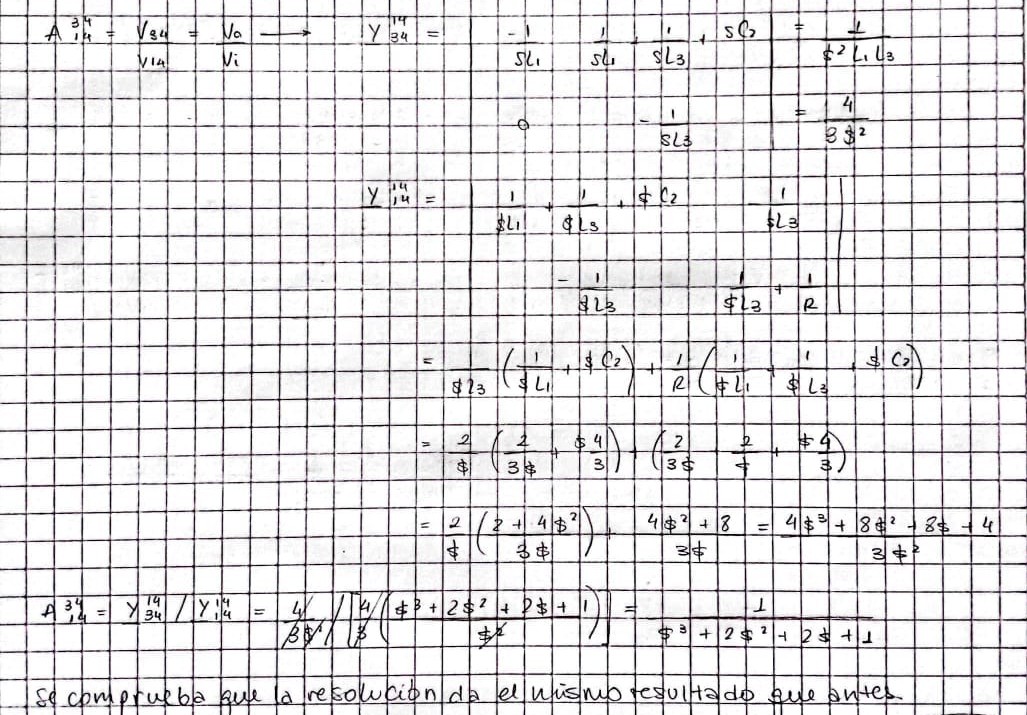 A ³⁴₁₄ = V34/V14 = Vo/Vi → Y ¹⁴₃₄ = | -1/SL1   1/SL1 + 1/SL3 + SC2 | = 1/($² L1 L3)
| 0   -1/SL3 | = 4/(3$²)
Y ¹⁴₁₄ = | 1/$L1 + 1/$L3 + $C2   -1/$L3 |
| -1/$L3   1/$L3 + 1/R |
= 1/$L3 (1/$L1 + $C2) + 1/R (1/$L1 + 1/$L3 + $C2)
= 2/$ (2/3$ + $4/3) + (2/3$ + 2/$ + $4/3)
= 2/$ ((2 + 4$²)/3$) + (4$² + 8)/3$ = (4$³ + 8$² + 8$ + 4)/3$²
A ³⁴₁₄ = Y ¹⁴₃₄ / Y ¹⁴₁₄ = 4/3$² / [4/3 (($³ + 2$² + 2$ + 1)/$²)] = 1/($³ + 2$² + 2$ + 1)
Se comprueba que la resolución da el mismo resultado que antes.